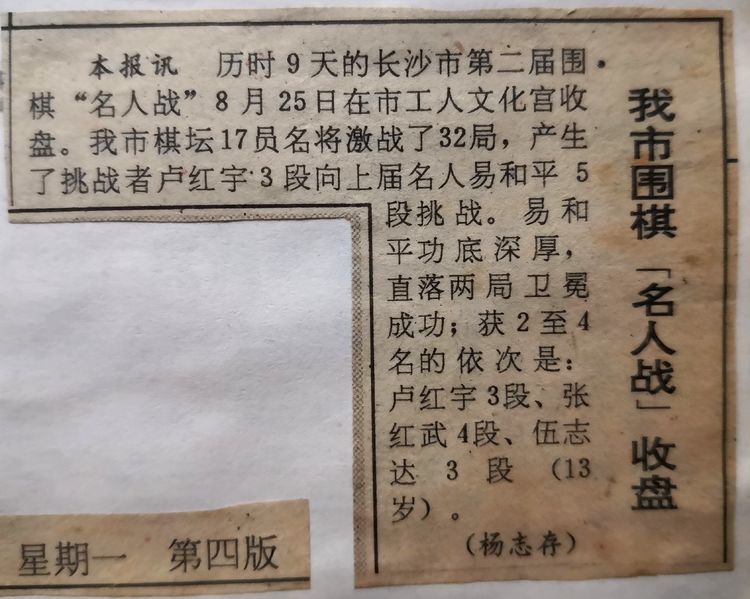 我市围棋「名人战」收盘
本报讯 历时9天的长沙市第二届围
棋“名人战”8月25日在市工人文化宫收
盘。我市棋坛17员名将激战了32局，产生
了挑战者卢红宇3段向上届名人易和平5
段挑战。易和
平功底深厚，
直落两局卫冕
成功；获2至4
名的依次是：
卢红宇3段、张
红武4段、伍志
达3段（13
岁）。
（杨志存）
星期一 第四版